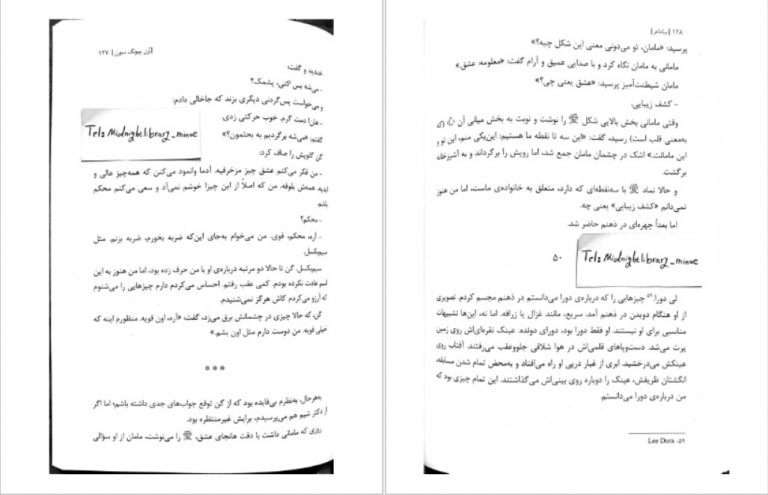 آون پیونگ سون | ۱۲۷
خندید و گفت:
- می‌شه بس کنی، پشمک؟
و می‌خواست پس‌گردنی دیگری بزند که جاخالی دادم:
- هان! دمت گرم. خوب حرکتی زدی.
گفتم: «می‌شه برگردیم به بحثمون؟»
گن گلویش را صاف کرد:
Tel: Midnightlibrary_minoc
- من فکر می‌کنم عشق چیز مزخرفیه. آدما وانمود می‌کنن که همه‌چیز عالی و
ابدیه. همه‌ش بلوفه. من که اصلاً از این چیزا خوشم نمی‌آد و سعی می‌کنم محکم
باشم.
- محکم؟
- آره، محکم، قوی. من می‌خوام به‌جای این‌که ضربه بخورم، ضربه بزنم. مثل
سیم‌بکسل.
سیم‌بکسل. گن تا حالا دو مرتبه درباره‌ی او با من حرف زده بود، اما من هنوز به این
اسم عادت نکرده بودم. کمی عقب رفتم. احساس می‌کردم دارم چیزهایی را می‌شنوم
که آرزو می‌کردم کاش هرگز نمی‌شنیدم.
گن، که حالا چیزی در چشمانش برق می‌زد، گفت: «آره، اون قویه. منظورم اینه که
خیلی قویه. من دوست دارم مثل اون بشم.»
***
به‌هرحال، به‌نظرم بی‌فایده بود که از گن توقع جواب‌های جدی داشته باشم؛ اما اگر
از دکتر شیم هم می‌پرسیدم، برایش غیرمنتظره بود.
روزی که مامانی داشت با دقت هانجای عشق، 愛 را می‌نوشت، مامان از او سؤالی
۱۲۸ | بادام |
پرسید: «مامان، تو می‌دونی معنی این شکل چیه؟»
مامانی به مامان نگاه کرد و با صدایی عمیق و آرام گفت: «معلومه: عشق.»
مامان شیطنت‌آمیز پرسید: «عشق یعنی چی؟»
- کشف زیبایی.
وقتی مامانی بخش بالایی شکل 愛 را نوشت و نوبت به بخش میانی آن 心 (که
به‌معنی قلب است) رسید، گفت: «این سه تا نقطه ما هستیم: این‌یکی منم، این تو و
این مامانت.» اشک در چشمان مامان جمع شد، اما رویش را برگرداند و به آشپزخانه
برگشت.
و حالا نماد 愛 با سه‌نقطه‌ای که دارد، متعلق به خانواده‌ی ماست، اما من هنوز
نمی‌دانم «کشف زیبایی» یعنی چه.
اما بعداً چهره‌ای در ذهنم حاضر شد.
۵۰
Tel: Midnightlibrary_minoc
لی دورا.⁵⁹ چیزهایی را که درباره‌ی دورا می‌دانستم در ذهنم مجسم کردم. تصویری
از او هنگام دویدن در ذهنم آمد. سریع، مانند غزال یا زرافه. اما نه، این‌ها تشبیهات
مناسبی برای او نیستند. او فقط دورا بود، دورای دونده. عینک نقره‌ای‌اش روی زمین
پرت می‌شد. دست‌وپاهای قلمی‌اش در هوا شلاقی جلووعقب می‌رفتند. آفتاب روی
عینکش می‌درخشید. ابری از غبار درپی او راه می‌افتاد و به‌محض تمام شدن مسابقه،
انگشتان ظریفش، عینک را دوباره روی بینی‌اش می‌گذاشتند. این تمام چیزی بود که
من درباره‌ی دورا می‌دانستم.
۵۹- Lee Dora